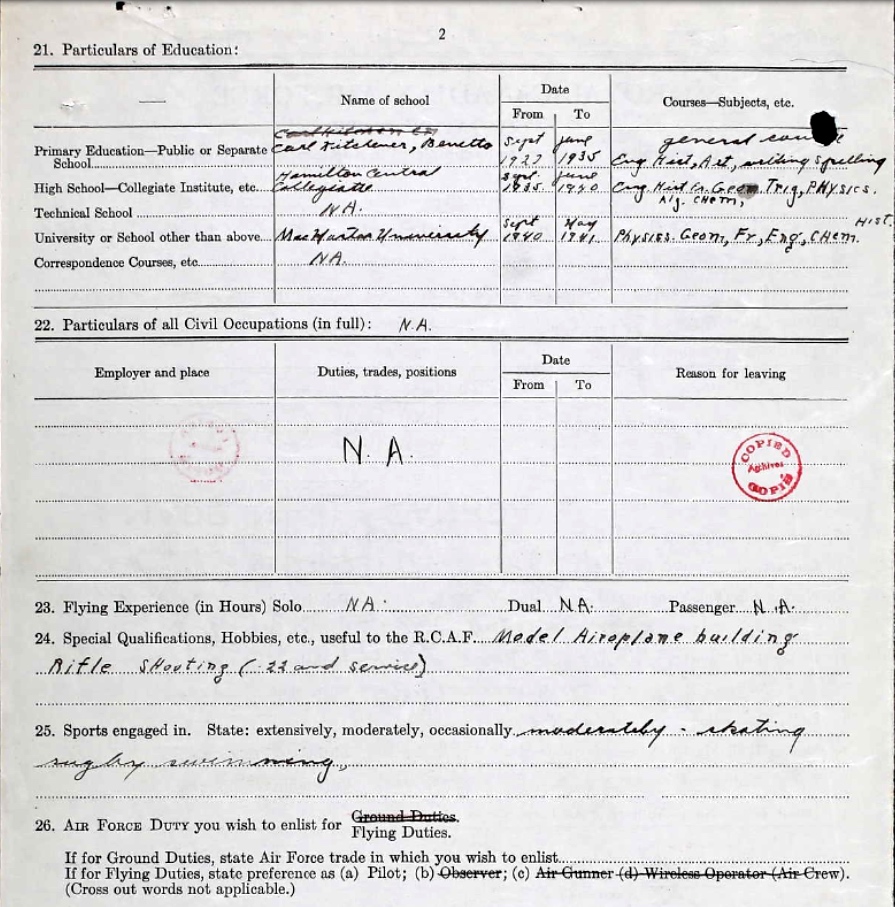 2
21. Particulars of Education:
Name of school
Date
From To
Courses—Subjects, etc.
Primary Education—Public or Separate School
Earl Kitchener, Benetto
Sept 1927
June 1935
general
Eng Hist, Art, writing Spelling
High School—Collegiate Institute, etc.
Hamilton Central
Collegiate
Sept. 1935
June 1940
Eng Hist Fr. Geom. Trig, PHYSICS.
Alg. CHEM,
Technical School
N.A.
University or School other than above
MacMaster University
Sept 1940
May 1941
Physics. Geom, Fr, Eng, CHEM. HIST.
Correspondence Courses, etc.
N.A.
22. Particulars of all Civil Occupations (in full): N.A.
Employer and place
Duties, trades, positions
Date
From To
Reason for leaving
N. A.
COPIED
Archives
COPIED
23. Flying Experience (in Hours) Solo N.A. Dual N.A. Passenger N.A.
24. Special Qualifications, Hobbies, etc., useful to the R.C.A.F. Model Airoplane building
Rifle Shooting (.22 and service)
25. Sports engaged in. State: extensively, moderately, occasionally. moderately - skating
rugby swimming,
26. AIR FORCE DUTY you wish to enlist for Ground Duties.
Flying Duties.
If for Ground Duties, state Air Force trade in which you wish to enlist
If for Flying Duties, state preference as (a) Pilot; (b) Observer; (c) Air Gunner (d) Wireless Operator (Air Crew).
(Cross out words not applicable.)